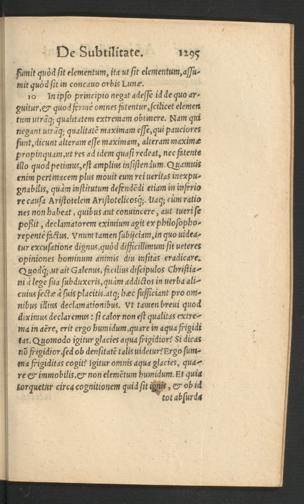 De Subtilitate. 1295
sumit quòd sit elementum, ita ut sit elementum, assu-
mit quòd sit in concauo orbis Lunæ.
10 In ipso principio negat adesse id de quo ar-
guitur, & quod fermè omnes fatentur, scilicet elemen
tum utrāq; qualitatem extremam obtinere. Nam qui
negant utrāq; qualitatē maximam esse, qui pauciores
sunt, dicunt alteram esse maximam, alteram maximæ
propinquam, ut res ad idem quasi redeat, nec fatente
illo quod petimus, est amplius insistendum. Quamuis
enim pertinacem plus mouit eum rei ueritas inexpu-
gnabilis, quàm institutum defendēdi etiam in inferio
re causa Aristotelem Aristotelicosq́;. Itaq; cùm ratio
nes non habeat, quibus aut conuincere, aut tueri se
possit, declamatorem eximium agit ex philosopho
repentè factus. Vnum tamen subijciam, in quo uidea-
tur excusatione dignus, quòd difficillimum sit ueteres
opiniones hominum animis diu insitas eradicare.
Quodq́;, ut ait Galenus, facilius discipulos Christia-
ni à lege sua subduxeris, quàm addictos in uerba ali-
cuius sectæ à suis placitis. atq; hæc sufficiant pro om-
nibus illius declamationibus. Vt tamen breui quod
diximus declaremus: si calor non est qualitas extre-
ma in aëre, erit ergo humidum, quare in aqua frigidi
tas. Quomodo igitur glacies aqua frigidior? Si dicas
nō frigidior, sed ob densitatē talis uidetur? Ergo sum-
ma frigiditas cogit? igitur omnis aqua glacies, qua-
re & immobilis, & non elemētum humidum. Et quia
torquetur circa cognitionem quid sit ignis, & ob id
tot absurda